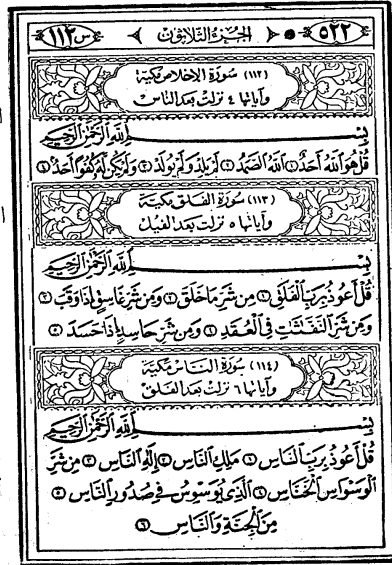 ٥٢٢ الجزء الثلاثون س ١١٢
(١١٢) سورة الإخلاص مكية
وآياتها ٤ نزلت بعد الناس
بِسْمِ اللَّهِ الرَّحْمَٰنِ الرَّحِيمِ
قُلْ هُوَ اللَّهُ أَحَدٌ ١ اللَّهُ الصَّمَدُ ٢ لَمْ يَلِدْ وَلَمْ يُولَدْ ٣ وَلَمْ يَكُن لَّهُ كُفُوًا أَحَدٌ ٤
(١١٣) سورة الفلق مكية
وآياتها ٥ نزلت بعد الفيل
بِسْمِ اللَّهِ الرَّحْمَٰنِ الرَّحِيمِ
قُلْ أَعُوذُ بِرَبِّ الْفَلَقِ ١ مِن شَرِّ مَا خَلَقَ ٢ وَمِن شَرِّ غَاسِقٍ إِذَا وَقَبَ ٣
وَمِن شَرِّ النَّفَّٰثَٰتِ فِي الْعُقَدِ ٤ وَمِن شَرِّ حَاسِدٍ إِذَا حَسَدَ ٥
(١١٤) سورة الناس مكية
وآياتها ٦ نزلت بعد الفلق
بِسْمِ اللَّهِ الرَّحْمَٰنِ الرَّحِيمِ
قُلْ أَعُوذُ بِرَبِّ النَّاسِ ١ مَلِكِ النَّاسِ ٢ إِلَٰهِ النَّاسِ ٣ مِن شَرِّ
الْوَسْوَاسِ الْخَنَّاسِ ٤ الَّذِي يُوَسْوِسُ فِي صُدُورِ النَّاسِ ٥
مِنَ الْجِنَّةِ وَالنَّاسِ ٦